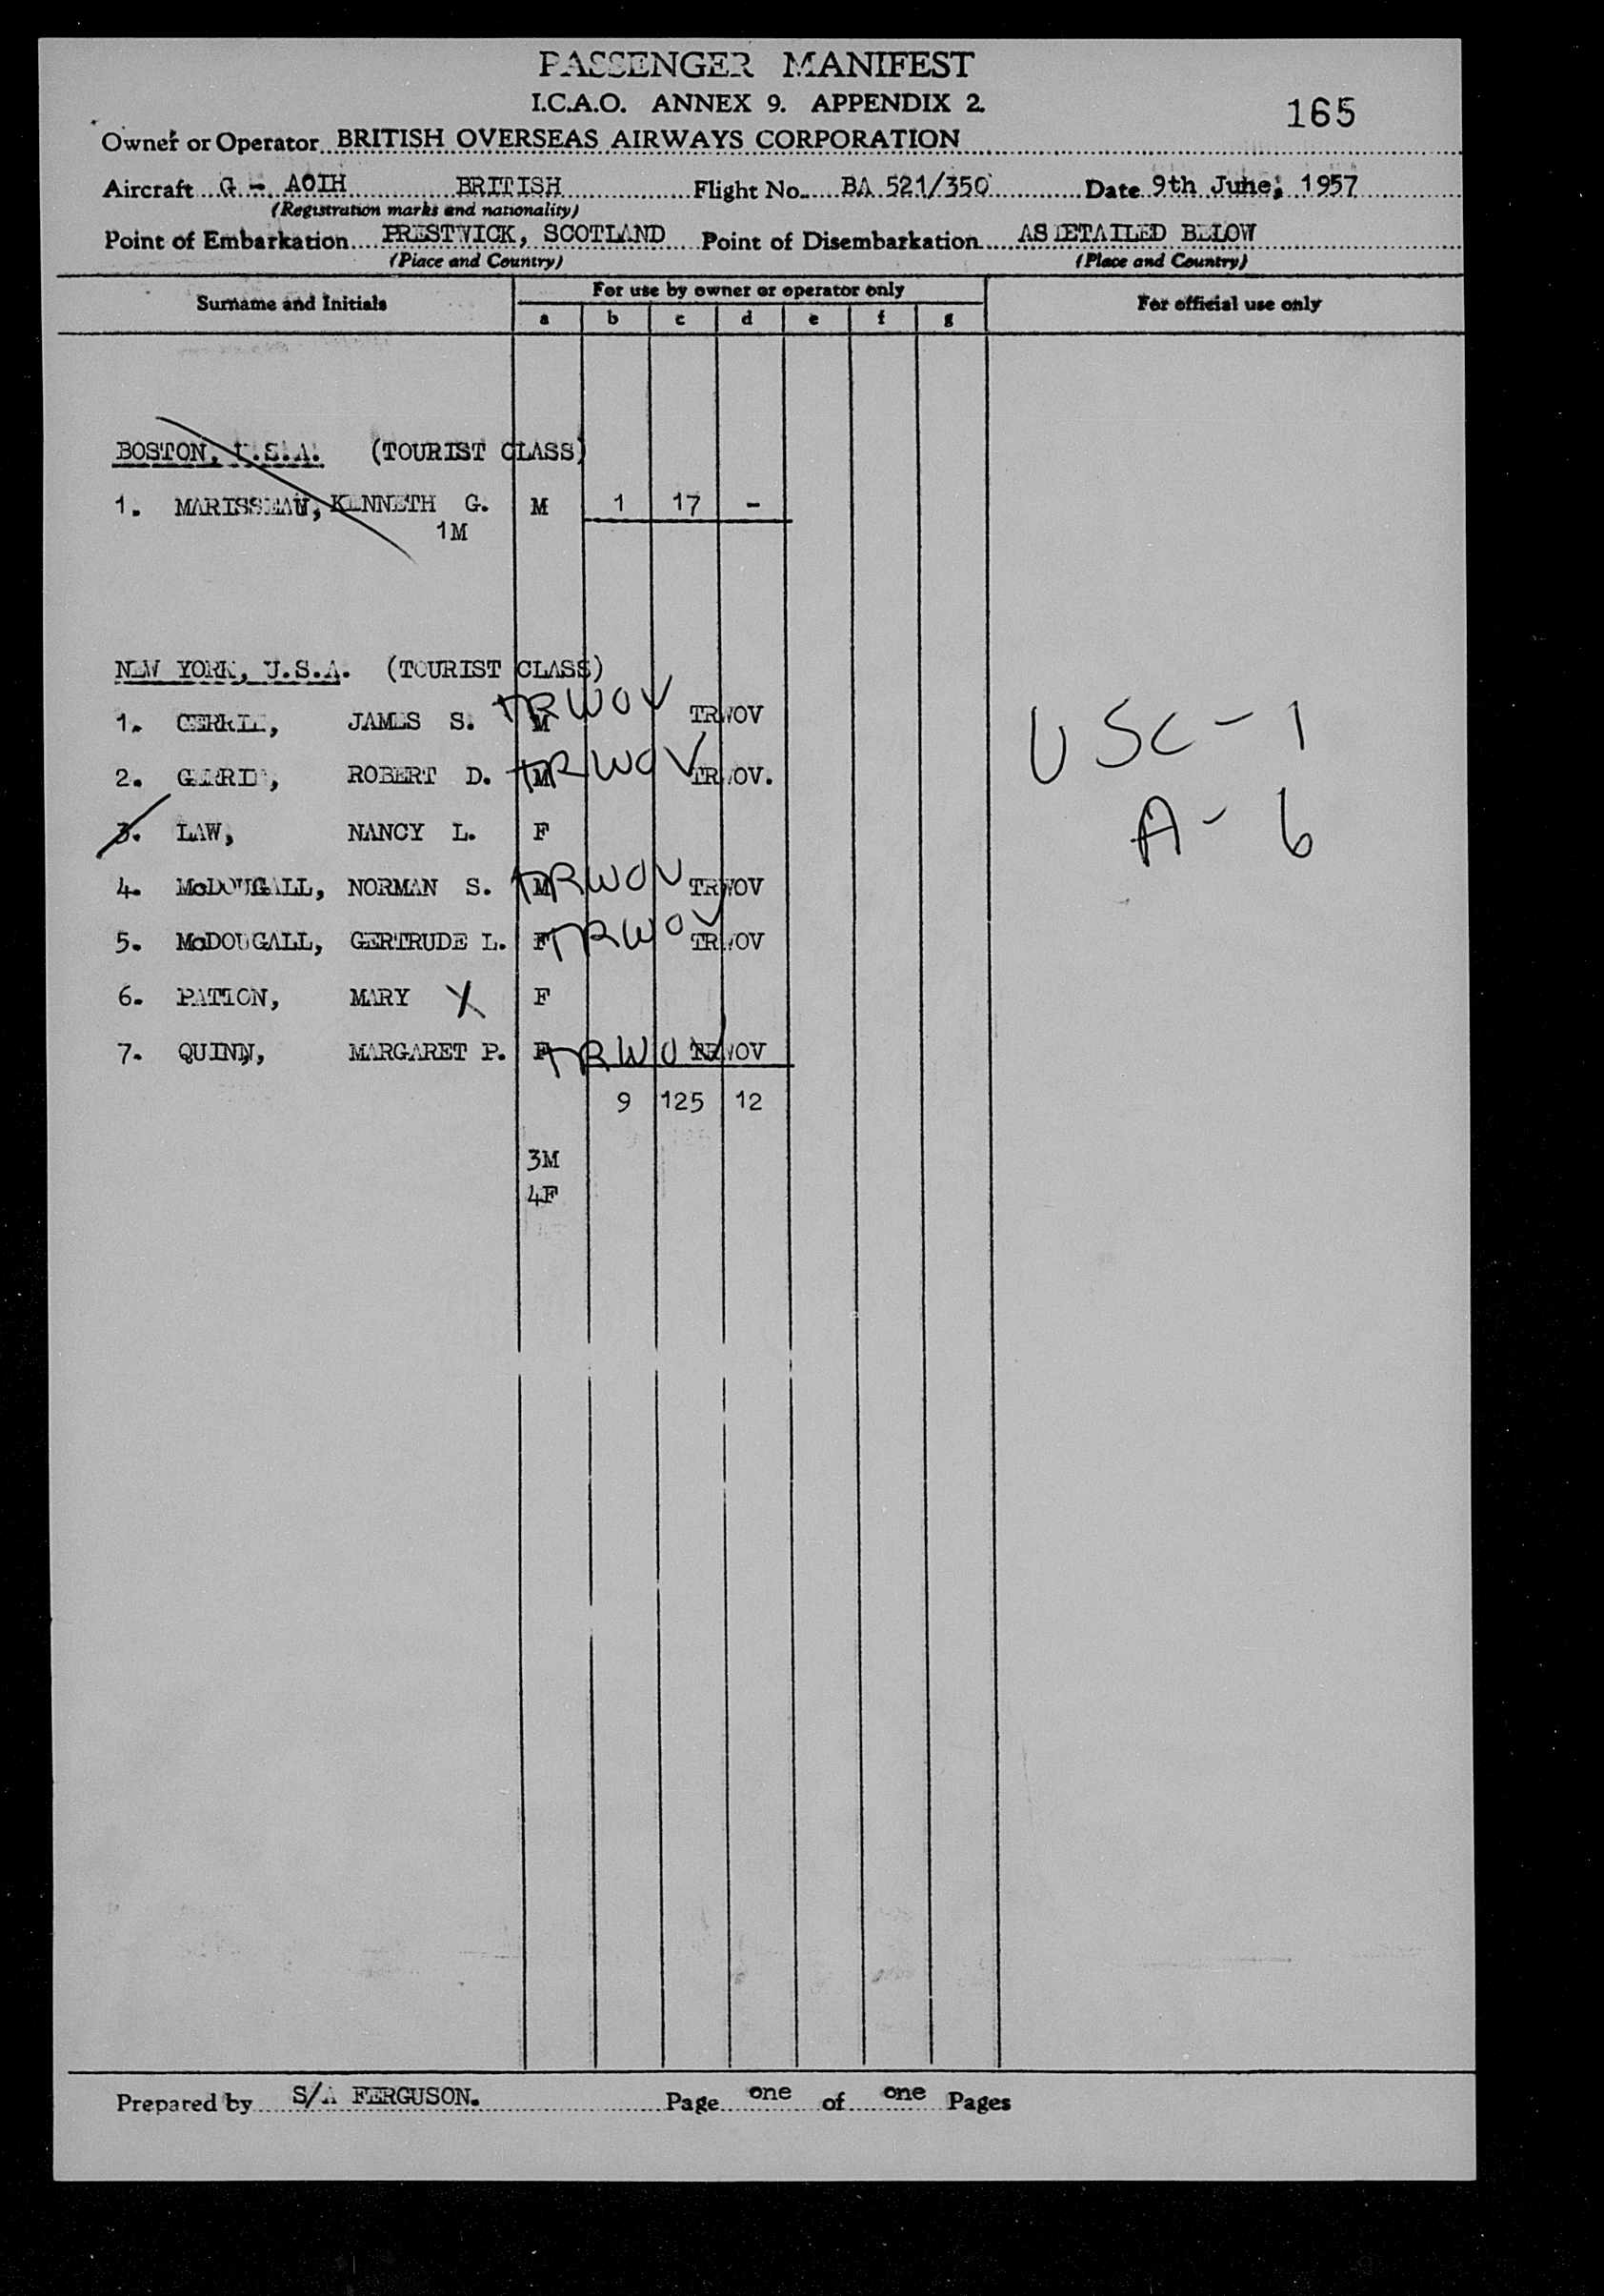 PASSENGER MANIFEST
I.C.A.O. ANNEX 9. APPENDIX 2.
165
Owner or Operator BRITISH OVERSEAS AIRWAYS CORPORATION
Aircraft G - AOIH BRITISH Flight No. BA 521/350 Date 9th June, 1957
(Registration marks and nationality)
Point of Embarkation PRESTWICK, SCOTLAND Point of Disembarkation AS DETAILED BELOW
(Place and Country) (Place and Country)
Surname and Initials For use by owner or operator only For official use only
a b c d e f g
BOSTON, U.S.A. (TOURIST CLASS)
1. MARISSEAU, KENNETH G. M 1 17 -
1M
NEW YORK, U.S.A. (TOURIST CLASS)
1. JAMES S. M TRWOV TRWOV
USC - 1
2. ROBERT D. M TRWOV TRWOV.
3. LAW, NANCY L. F
A - 6
4. McDOUGALL, NORMAN S. M TRWOV TRWOV
5. McDOUGALL, GERTRUDE L. F TRWOV TRWOV
6. MARY X F
7. QUINN, MARGARET P. F TRWOV TRWOV
9 125 12
3M
4F
Prepared by S/A FERGUSON. Page one of one Pages